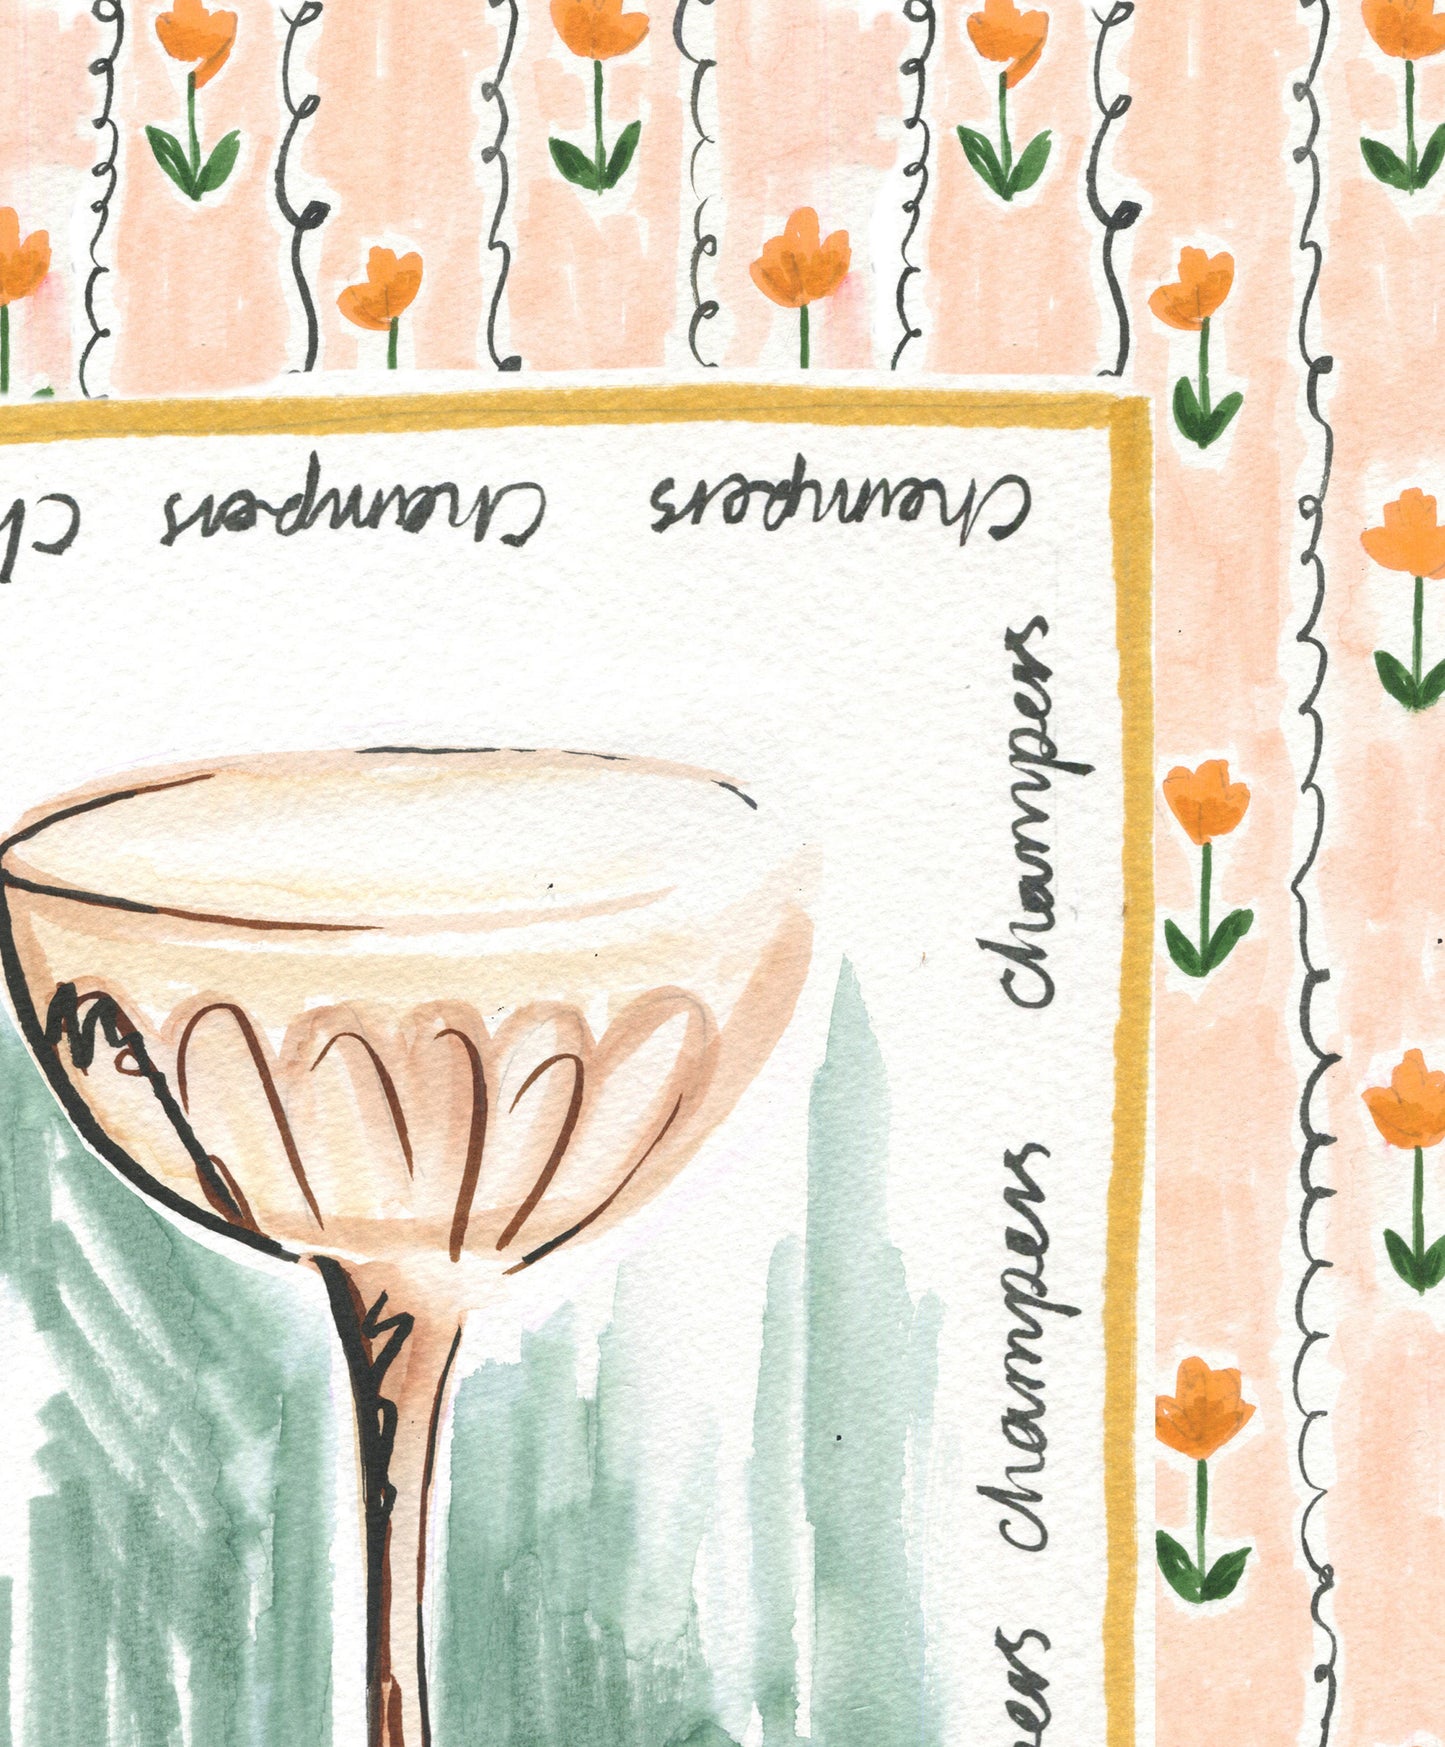 champers champers ch
ers champers champers